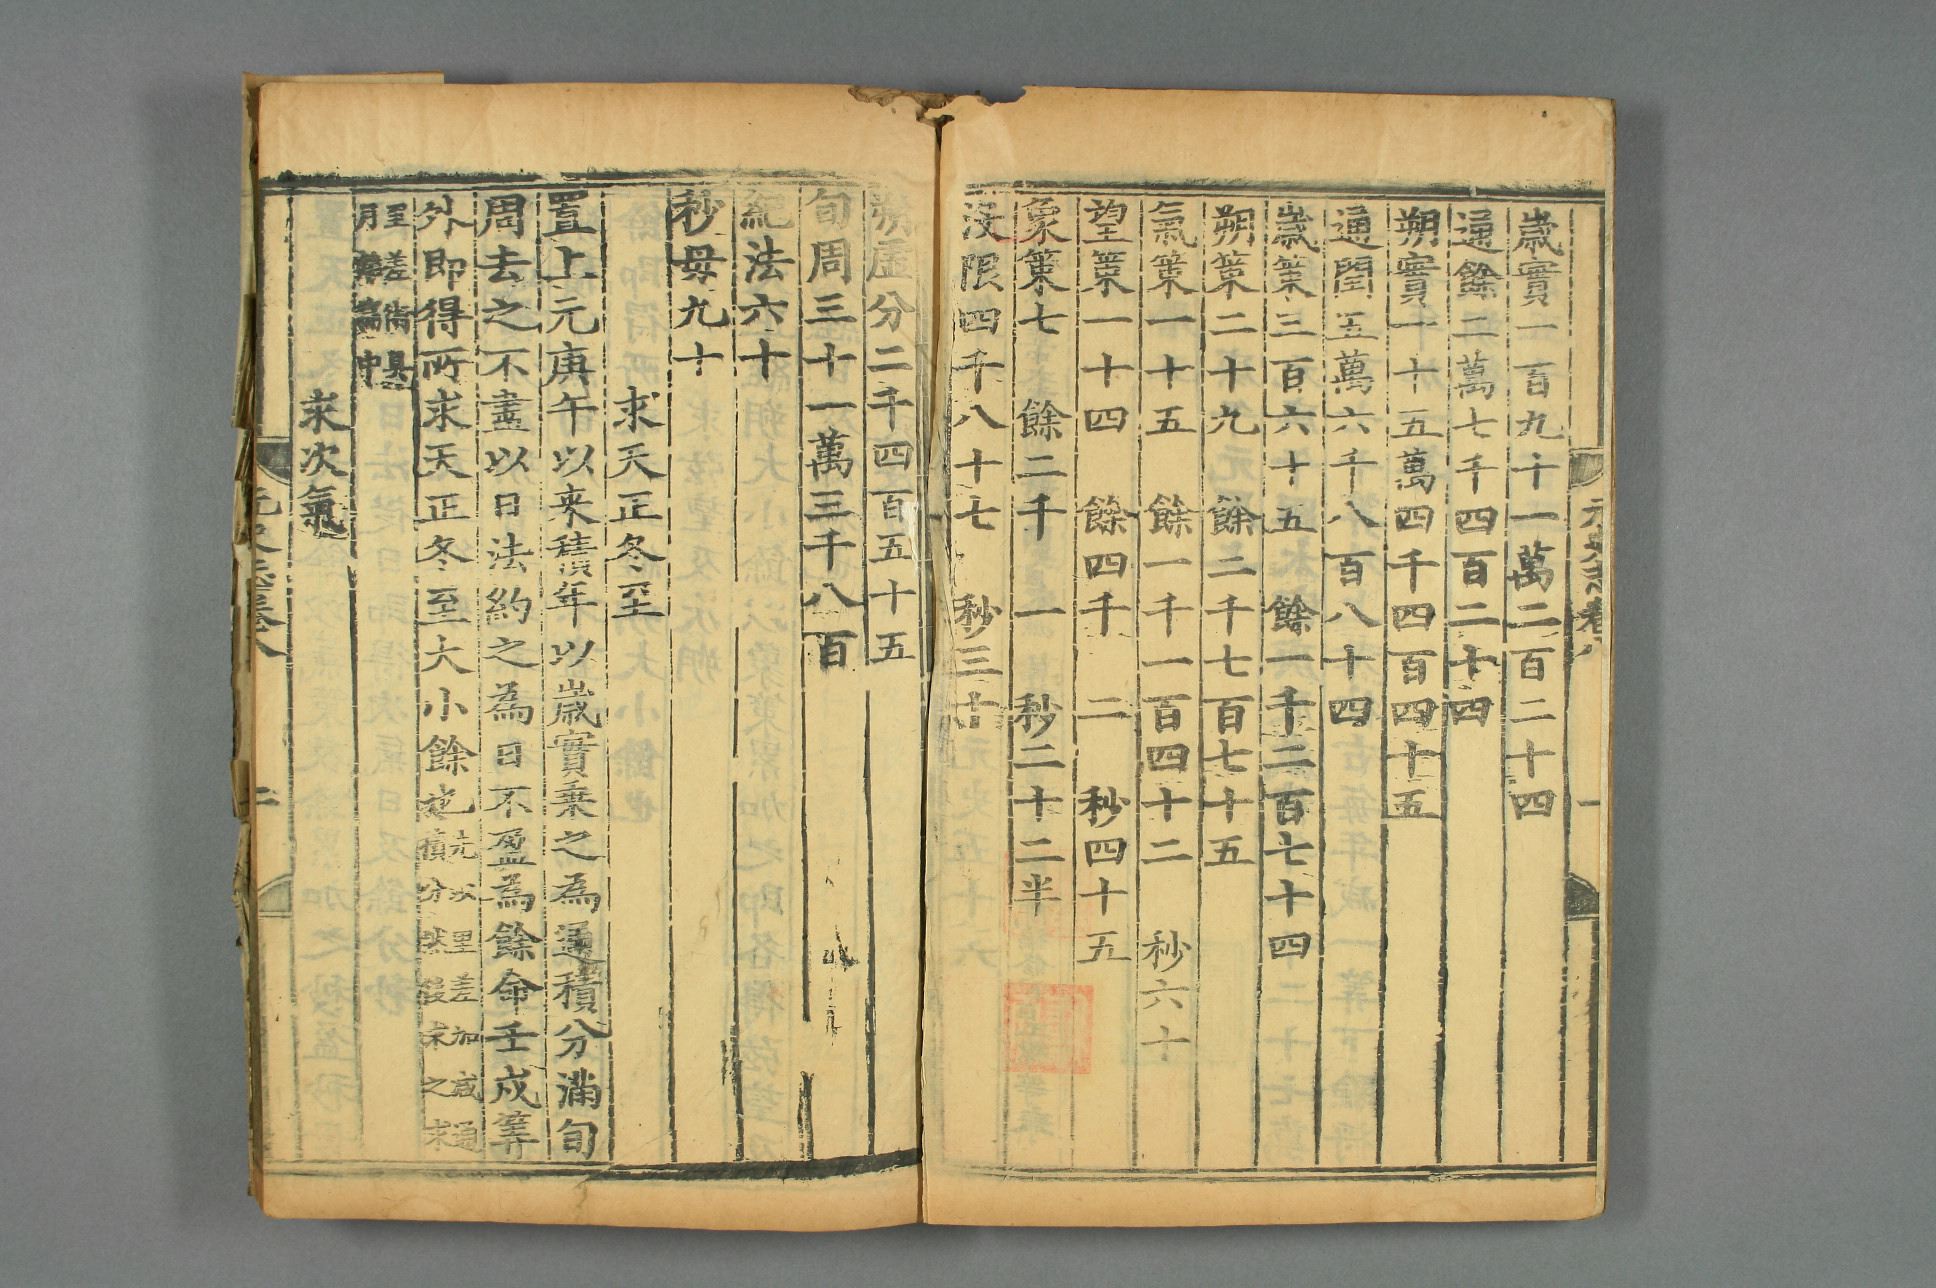 元史志卷八
一
歲實一百九十一萬二百二十四
通餘二萬七千四百二十四
朔實一十五萬四千四百四十五
通閏五萬六千八百八十四
歲策三百六十五 餘一千二百七十四
朔策二十九 餘二千七百七十五
氣策一十五 餘一千一百四十二 秒六十
望策一十四 餘四千 二 秒四十五
象策七 餘二千 一 秒二十二半
沒限四千八十七 秒三十
朔虛分二千四百五十五
旬周三十一萬三千八百
紀法六十
秒母九十
求天正冬至
置上元庚午以來積年以歲實乘之為通積分滿旬
周去之不盡以日法約之為日不盈為餘命壬戌筭
外即得所求天正冬至大小餘也先以里差加減通
積分然後求之求
里差術具
月離篇中
求次氣
元史志卷八
二